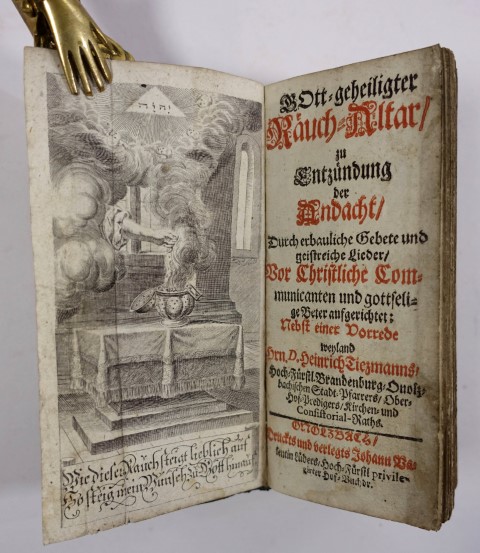 יהוה
Wie dieser Rauch steigt lieblich auf
So steig mein Wunsch zu Gott hinauf
GOtt-geheiligter
Räuch-Altar/
zu
Entzündung
der
Andacht/
Durch erbauliche Gebete und
geistreiche Lieder/
Vor Christliche Com-
municanten und gottseli-
ge Beter aufgerichtet:
Nebst einer Vorrede
weyland
Hrn. D. Heinrich Tiezmanns,
Hoch-Fürstl. Brandenburg-Onolz-
bachischen Stadt-Pfarrers/Ober-
Hof-Predigers/Kirchen- und
Consistorial-Raths.
ONOLZBACH/
Druckts und verlegts Johann Va-
lentin Lüders/Hoch-Fürstl. privile-
girter Hof-Buchdr.